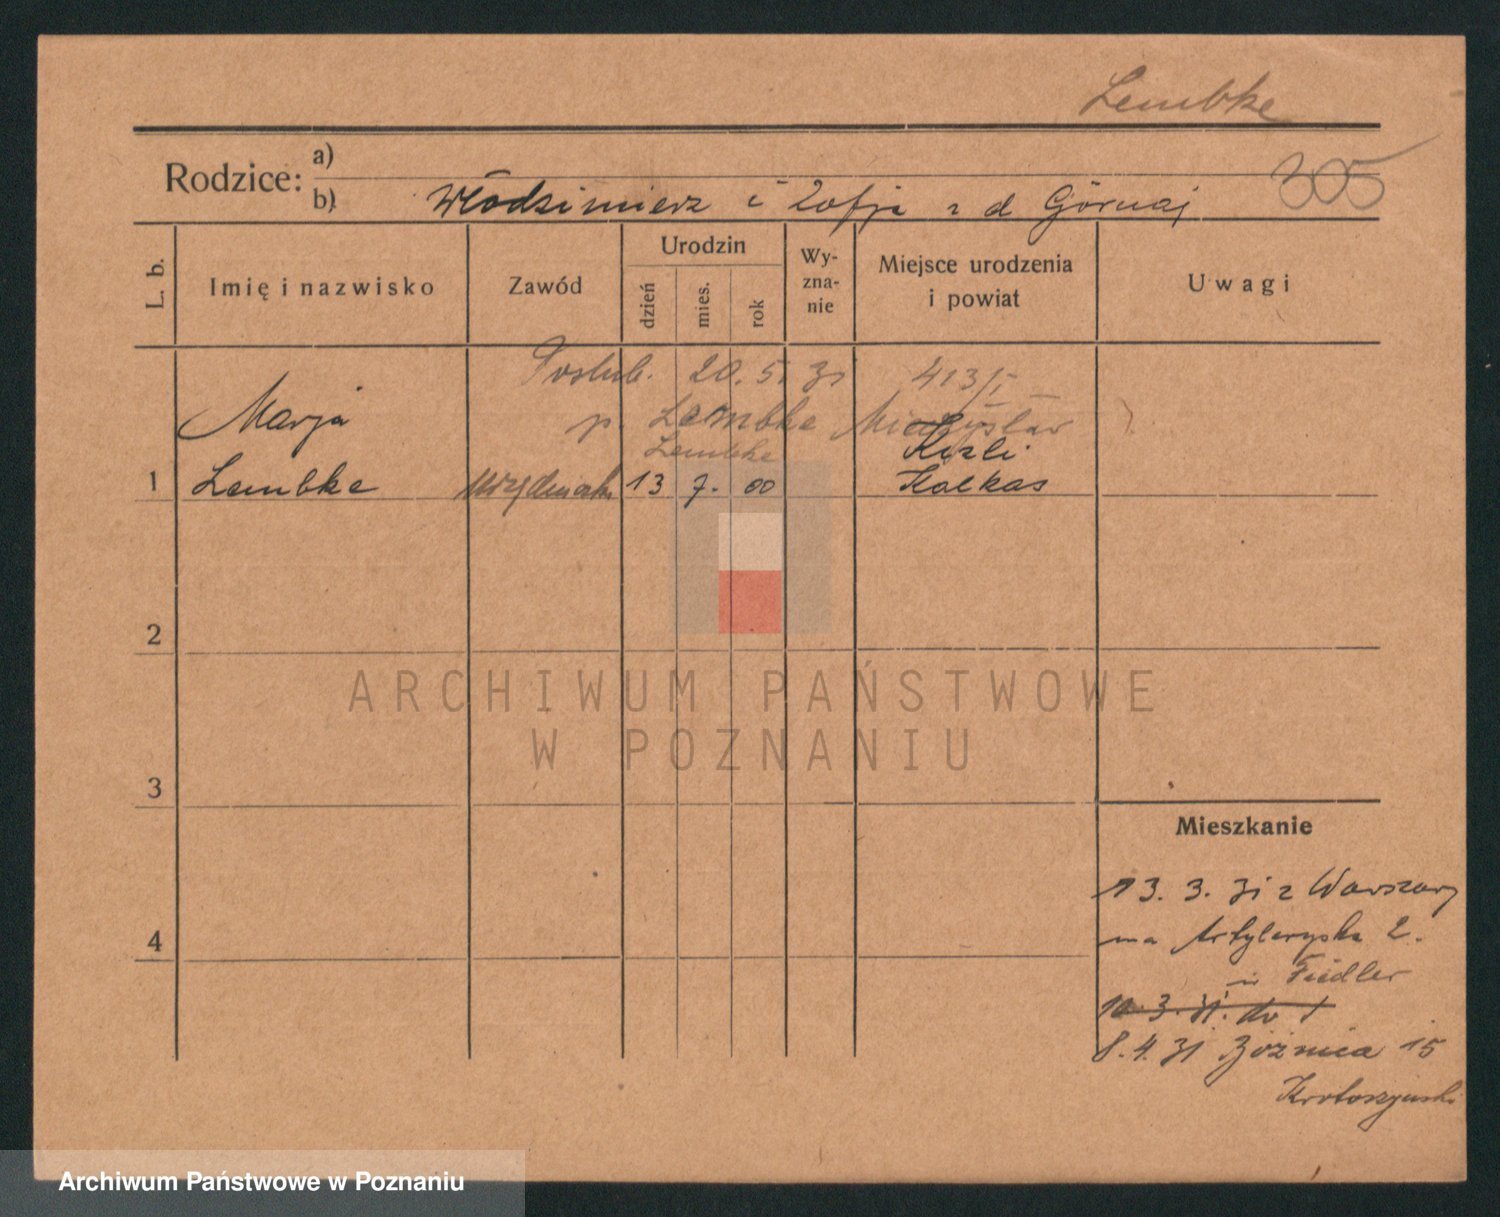 Lembke
305
Rodzice: a)
b) Włodzimierz i Zofja z d Górnaj
L. b.
Imię i nazwisko
Zawód
Urodzin
dzień
mies.
rok
Wy-
zna-
nie
Miejsce urodzenia
i powiat
Uwagi
Poślub. 20. 5. 31 413/I
p. Lembke Mieczysław
Lembke
1 Marja
Lembke
13 7. 00
Kizli
Kaukas
2
3
4
Mieszkanie
13. 3. 31 z Warszawy
na Artyleryska 2.
Fiedler
10. 3. 31. do
8. 4. 31 Bóżnica 15
Krotoszyński
ARCHIWUM PAŃSTWOWE
W POZNANIU
Archiwum Państwowe w Poznaniu